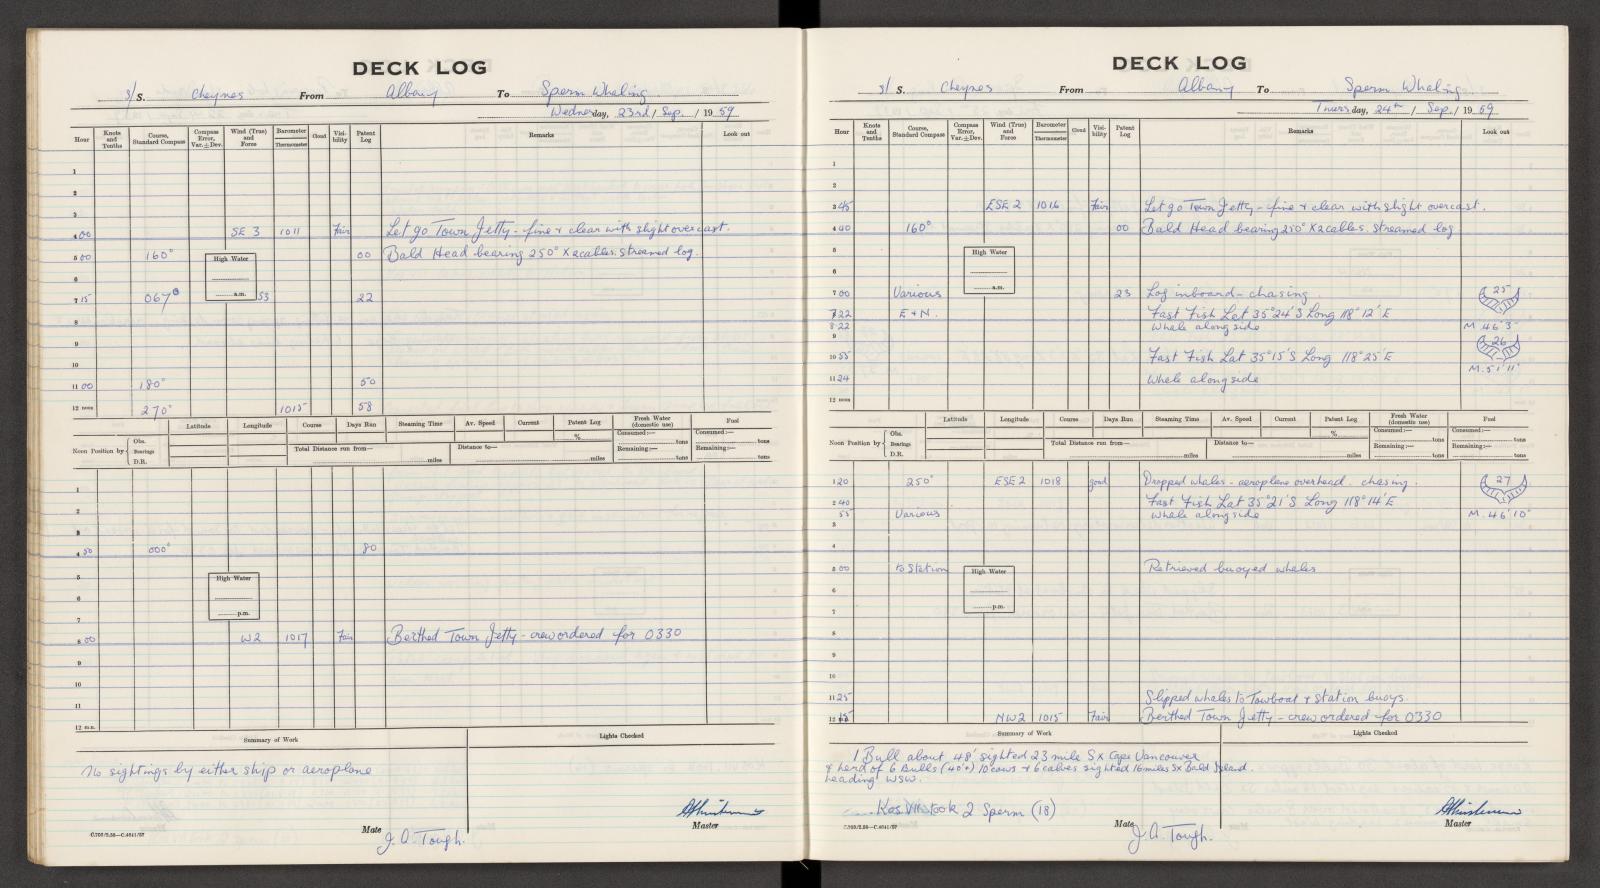 DECK LOG
S/S. Cheynes From Albany To Sperm Whaling
Wednesday, 23rd / Sep. / 19 59
Hour Knots and Tenths Course, Standard Compass Compass Error, Var. ± Dev. Wind (True) and Force Barometer Thermometer Cloud Visibility Patent Log Remarks Look out
1
2
3
4 00 SE 3 1011 Fair Let go Town Jetty - fine & clear with slight overcast.
5 00 160° 00 Bald Head bearing 250° x 2 cables. Streamed log.
High Water
6
a.m.
7 15 067° 53 22
8
9
10
11 00 180° 50
12 noon 270° 1015 58
Latitude Longitude Course Days Run Steaming Time Av. Speed Current Patent Log Fresh Water (domestic use) Fuel
% Consumed:— tons Consumed:— tons
Noon Position by Obs. Bearings D.R. Total Distance run from— miles Distance to— miles Remaining:— tons Remaining:— tons
1
2
3
4 50 000° 80
5
High Water
6
p.m.
7
8 00 W2 1017 Fair Berthed Town Jetty - crew ordered for 0330
9
10
11
12 m.n.
Summary of Work Lights Checked
No sightings by either ship or aeroplane
C.700/2.58—C.4641/57 Mate J. A. Tough. Master
DECK LOG
S/S. Cheynes From Albany To Sperm Whaling
Thursday, 24th / Sep. / 19 59
Hour Knots and Tenths Course, Standard Compass Compass Error, Var. ± Dev. Wind (True) and Force Barometer Thermometer Cloud Visibility Patent Log Remarks Look out
1
2
3 45 ESE 2 1016 Fair Let go Town Jetty - fine & clear with slight overcast.
4 40 160° 00 Bald Head bearing 250° x 2 cables. Streamed log
5
High Water
6
a.m.
7 00 Various 23 Log inboard - chasing. 25
22 E + N. Fast Fish Lat 35° 24' S Long 118° 12' E
8 22 Whale alongside M 46' 3"
9 26
10 55 Fast Fish Lat 35° 15' S Long 118° 25' E
M. 51' 11"
11 24 Whale alongside
12 noon
Latitude Longitude Course Days Run Steaming Time Av. Speed Current Patent Log Fresh Water (domestic use) Fuel
% Consumed:— tons Consumed:— tons
Noon Position by Obs. Bearings D.R. Total Distance run from— miles Distance to— miles Remaining:— tons Remaining:— tons
1 20 250° ESE 2 1018 good Dropped whales - aeroplane overhead. chasing. 27
2 40 Fast Fish Lat 35° 21' S Long 118° 14' E
55 Various Whale alongside M. 46' 10"
3
4
5 00 to Station Retrieved buoyed whales
High Water
6
p.m.
7
8
9
10
11 25 Slipped whales to Towboat & Station buoys.
12 15 NW2 1015 Fair Berthed Town Jetty - crew ordered for 0330
Summary of Work Lights Checked
1 Bull about 48' sighted 23 mile S x Cape Vancouver
& herd of 6 Bulls (40'+) 10 cows & 6 calves sighted 16 miles S x Bald Island.
heading WSW.
Kos VII took 2 Sperm (18)
C.700/2.58—C.4641/57 Mate J. A. Tough. Master